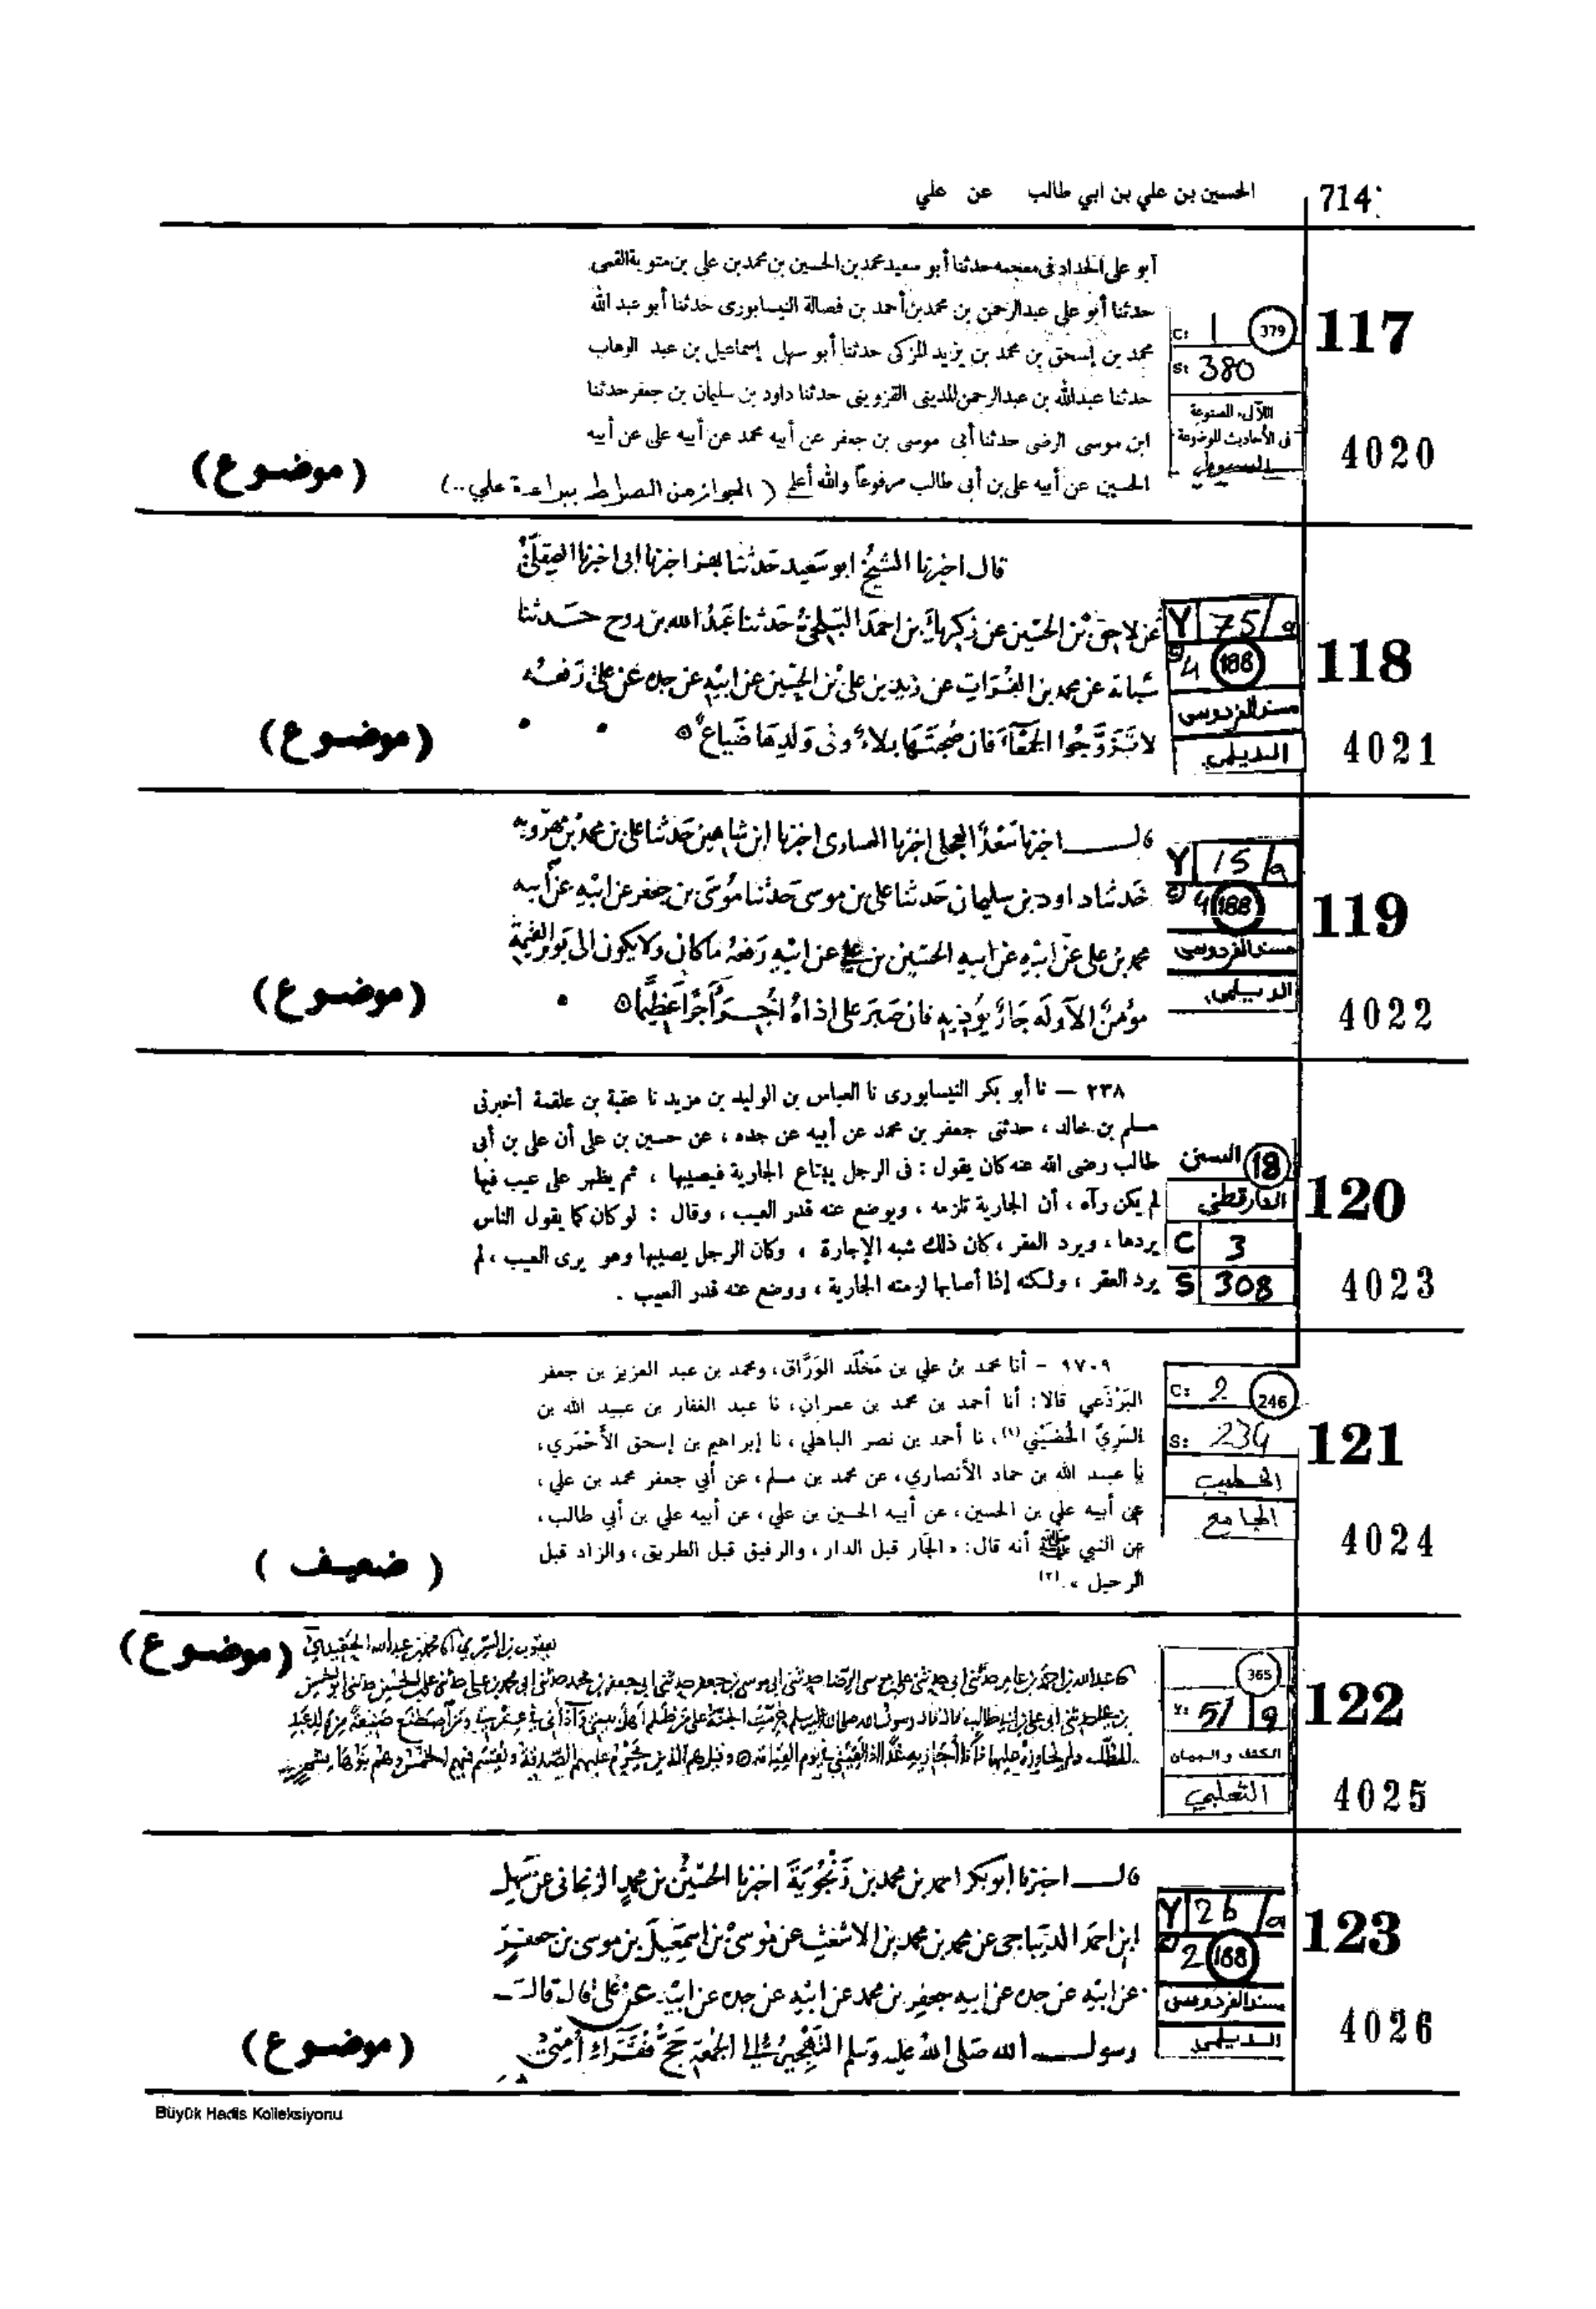 714
الحسين بن علي بن ابي طالب عن علي
117
C: 1 379
S: 380
اللآلىء المصنوعة
فى الأحاديث الموضوعة
السيوطي
4020
أبو على الحداد فى معجمه حدثنا أبو سعيد محمد بن الحسين بن محمد بن على بن متوية القمى
حدثنا أبو على عبدالرحمن بن محمد بن أحمد بن فضالة النيسابورى حدثنا أبو عبد الله
محمد بن إسحق بن محمد بن يزيد المزكى حدثنا أبو سهل إسماعيل بن عبد الوهاب
حدثنا عبدالله بن عبدالرحمن المدينى القزوينى حدثنا داود بن سليمان بن جعفر حدثنا
ابن موسى الرضى حدثنا أبى موسى بن جعفر عن أبيه محمد عن أبيه على عن أبيه
الحسين عن أبيه على بن أبى طالب مرفوعاً والله أعلم ( الجواز من الصراط ببراءة علي ..)
(موضوع)
118
Y 75/a
4 188
مسند الفردوسى
الديلمي
4021
قال اخبرنا الشيخ ابو سعيد حدثنا اخبرنا ابى اخبرنا
عن لاحق بن الحسين عن زكرياء بن احمد البلخى حدثنا عبد الله بن روح حدثنا
شبابة عن محمد بن الفرات عن زيد بن على بن الحسين عن ابيه عن جده عن على رفعه
لا تتزوجوا الحمقاء فان صحبتها بلاء وفى ولدها ضياع
(موضوع)
119
Y 15/a
4 188
مسند الفردوسى
الديلمي
4022
قال اخبرنا سعد العجلى اخبرنا اخبرنا ابن شاهين حدثنا على بن محمد بن مهرويه
حدثنا داود بن سليمان حدثنا على بن موسى حدثنا موسى بن جعفر عن ابيه عن ابيه
محمد بن على عن ابيه عن ابيه الحسين بن على عن ابيه رفعه ما كان ولا يكون الى يوم القيمة
مؤمن الا وله جار يؤذيه فان صبر على اذاه اجرا عظيما
(موضوع)
120
السنن 18
الدارقطني
C 3
S 308
4023
٢٣٨ – نا أبو بكر النيسابورى نا العباس بن الوليد بن مزيد نا عقبة بن علقمة أخبرنى
مسلم بن خالد ، حدثنى جعفر بن محمد عن أبيه عن جده ، عن حسين بن على أن على بن أبى
طالب رضى الله عنه كان يقول : فى الرجل يبتاع الجارية فيصيبها ، ثم يظهر على عيب فيها
لم يكن رآه ، أن الجارية تلزمه ، ويوضع عنه قدر العيب ، وقال : لو كان كما يقول الناس
يردها ، ويرد العقر ، كان ذلك شبه الإجارة ، وكان الرجل يصيبها وهو يرى العيب ، لم
يرد العقر ، ولكنه إذا أصابها لزمته الجارية ، ووضع عنه قدر العيب .
121
C: 2 246
S: 234
الخطيب
الجامع
4024
١٧٠٩ – أنا محمد بن علي بن مَخْلَد الوَرَّاق، ومحمد بن عبد العزيز بن جعفر
البَرْذَعي قالا: أنا أحمد بن محمد بن عمران، نا عبد الغفار بن عبيد الله بن
السَرِيّ الحُضَيْني(١)، نا أحمد بن نصر الباهلي، نا إبراهيم بن إسحق الأحْمَري،
نا عبد الله بن حماد الأنصاري، عن محمد بن مسلم، عن أبي جعفر محمد بن علي،
عن أبيه علي بن الحسين، عن أبيه الحسين بن علي، عن أبيه علي بن أبي طالب،
عن النبي ﷺ أنه قال: «الجَار قبل الدار، والرفيق قبل الطريق، والزاد قبل
الرحيل».(٢)
( ضعيف )
122
365
Y: 51 / a
الكشف والبيان
الثعلبي
4025
يعقوب بن السري محمد بن عبدالله
عبدالله بن احمد بن عامر حدثنى ابى حدثنى على بن موسى الرضا حدثنى ابى موسى بن جعفر حدثنى ابى جعفر بن محمد حدثنى ابى محمد بن على حدثنى على بن الحسين حدثنى ابى الحسين
بن على حدثنى ابى على بن ابى طالب قال قال رسول الله صلى الله عليه وسلم حرمت الجنة على من ظلم أهل بيتي وآذاني في عترتي ومن اصطنع صنيعة
المطلب ولم يجازه عليها فأنا أجازيه غدا اذا لقيني في يوم القيامة
(موضوع)
123
Y 26/a
2 188
مسند الفردوسى
الديلمي
4026
قال اخبرنا ابو بكر احمد بن محمد بن زنجوية اخبرنا الحسين بن محمد الزنجانى عن سهل
ابن احمد الديباجى عن محمد بن محمد بن الاشعث عن موسى بن اسمعيل بن موسى بن جعفر
عن ابيه عن جده عن ابيه جعفر بن محمد عن ابيه عن جده عن ابيه عن على قال قال
رسول الله صلى الله عليه وسلم الى الجمعة حج فقراء أمتى
(موضوع)
Büyük Hadis Kolleksiyonu